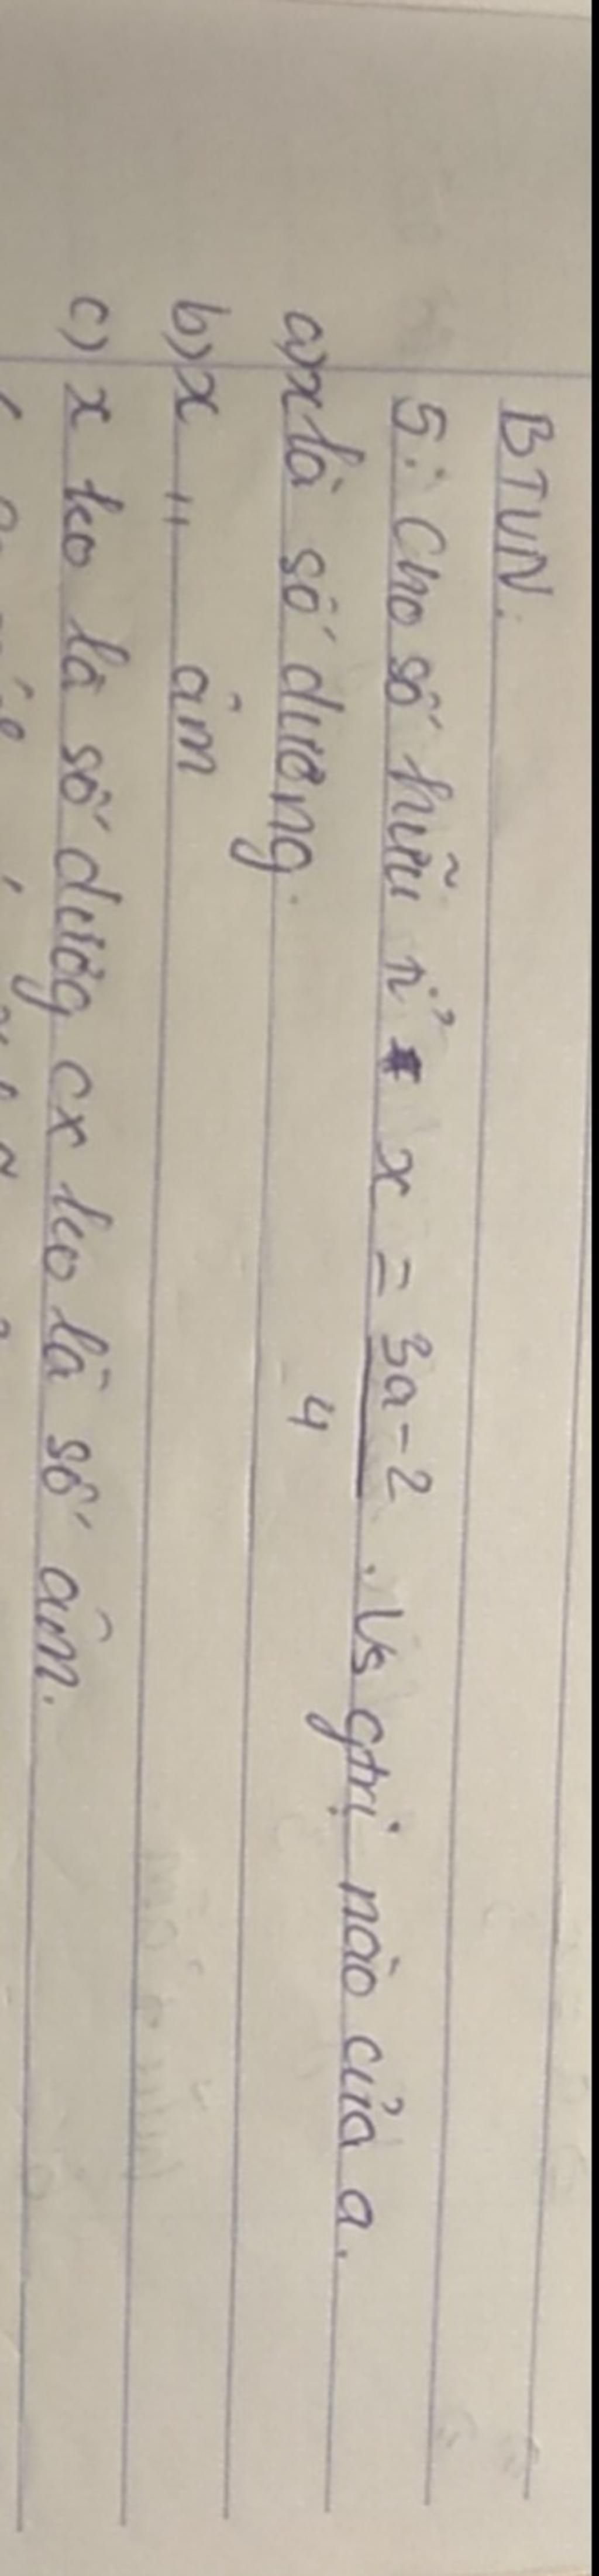 BTVN:
5: Cho số hữu tỉ x = 3a-2 / 4 . Vs gtrị nào của a.
a) x là số dương.
b) x " âm
c) x ko là số dươg cx ko là số âm.